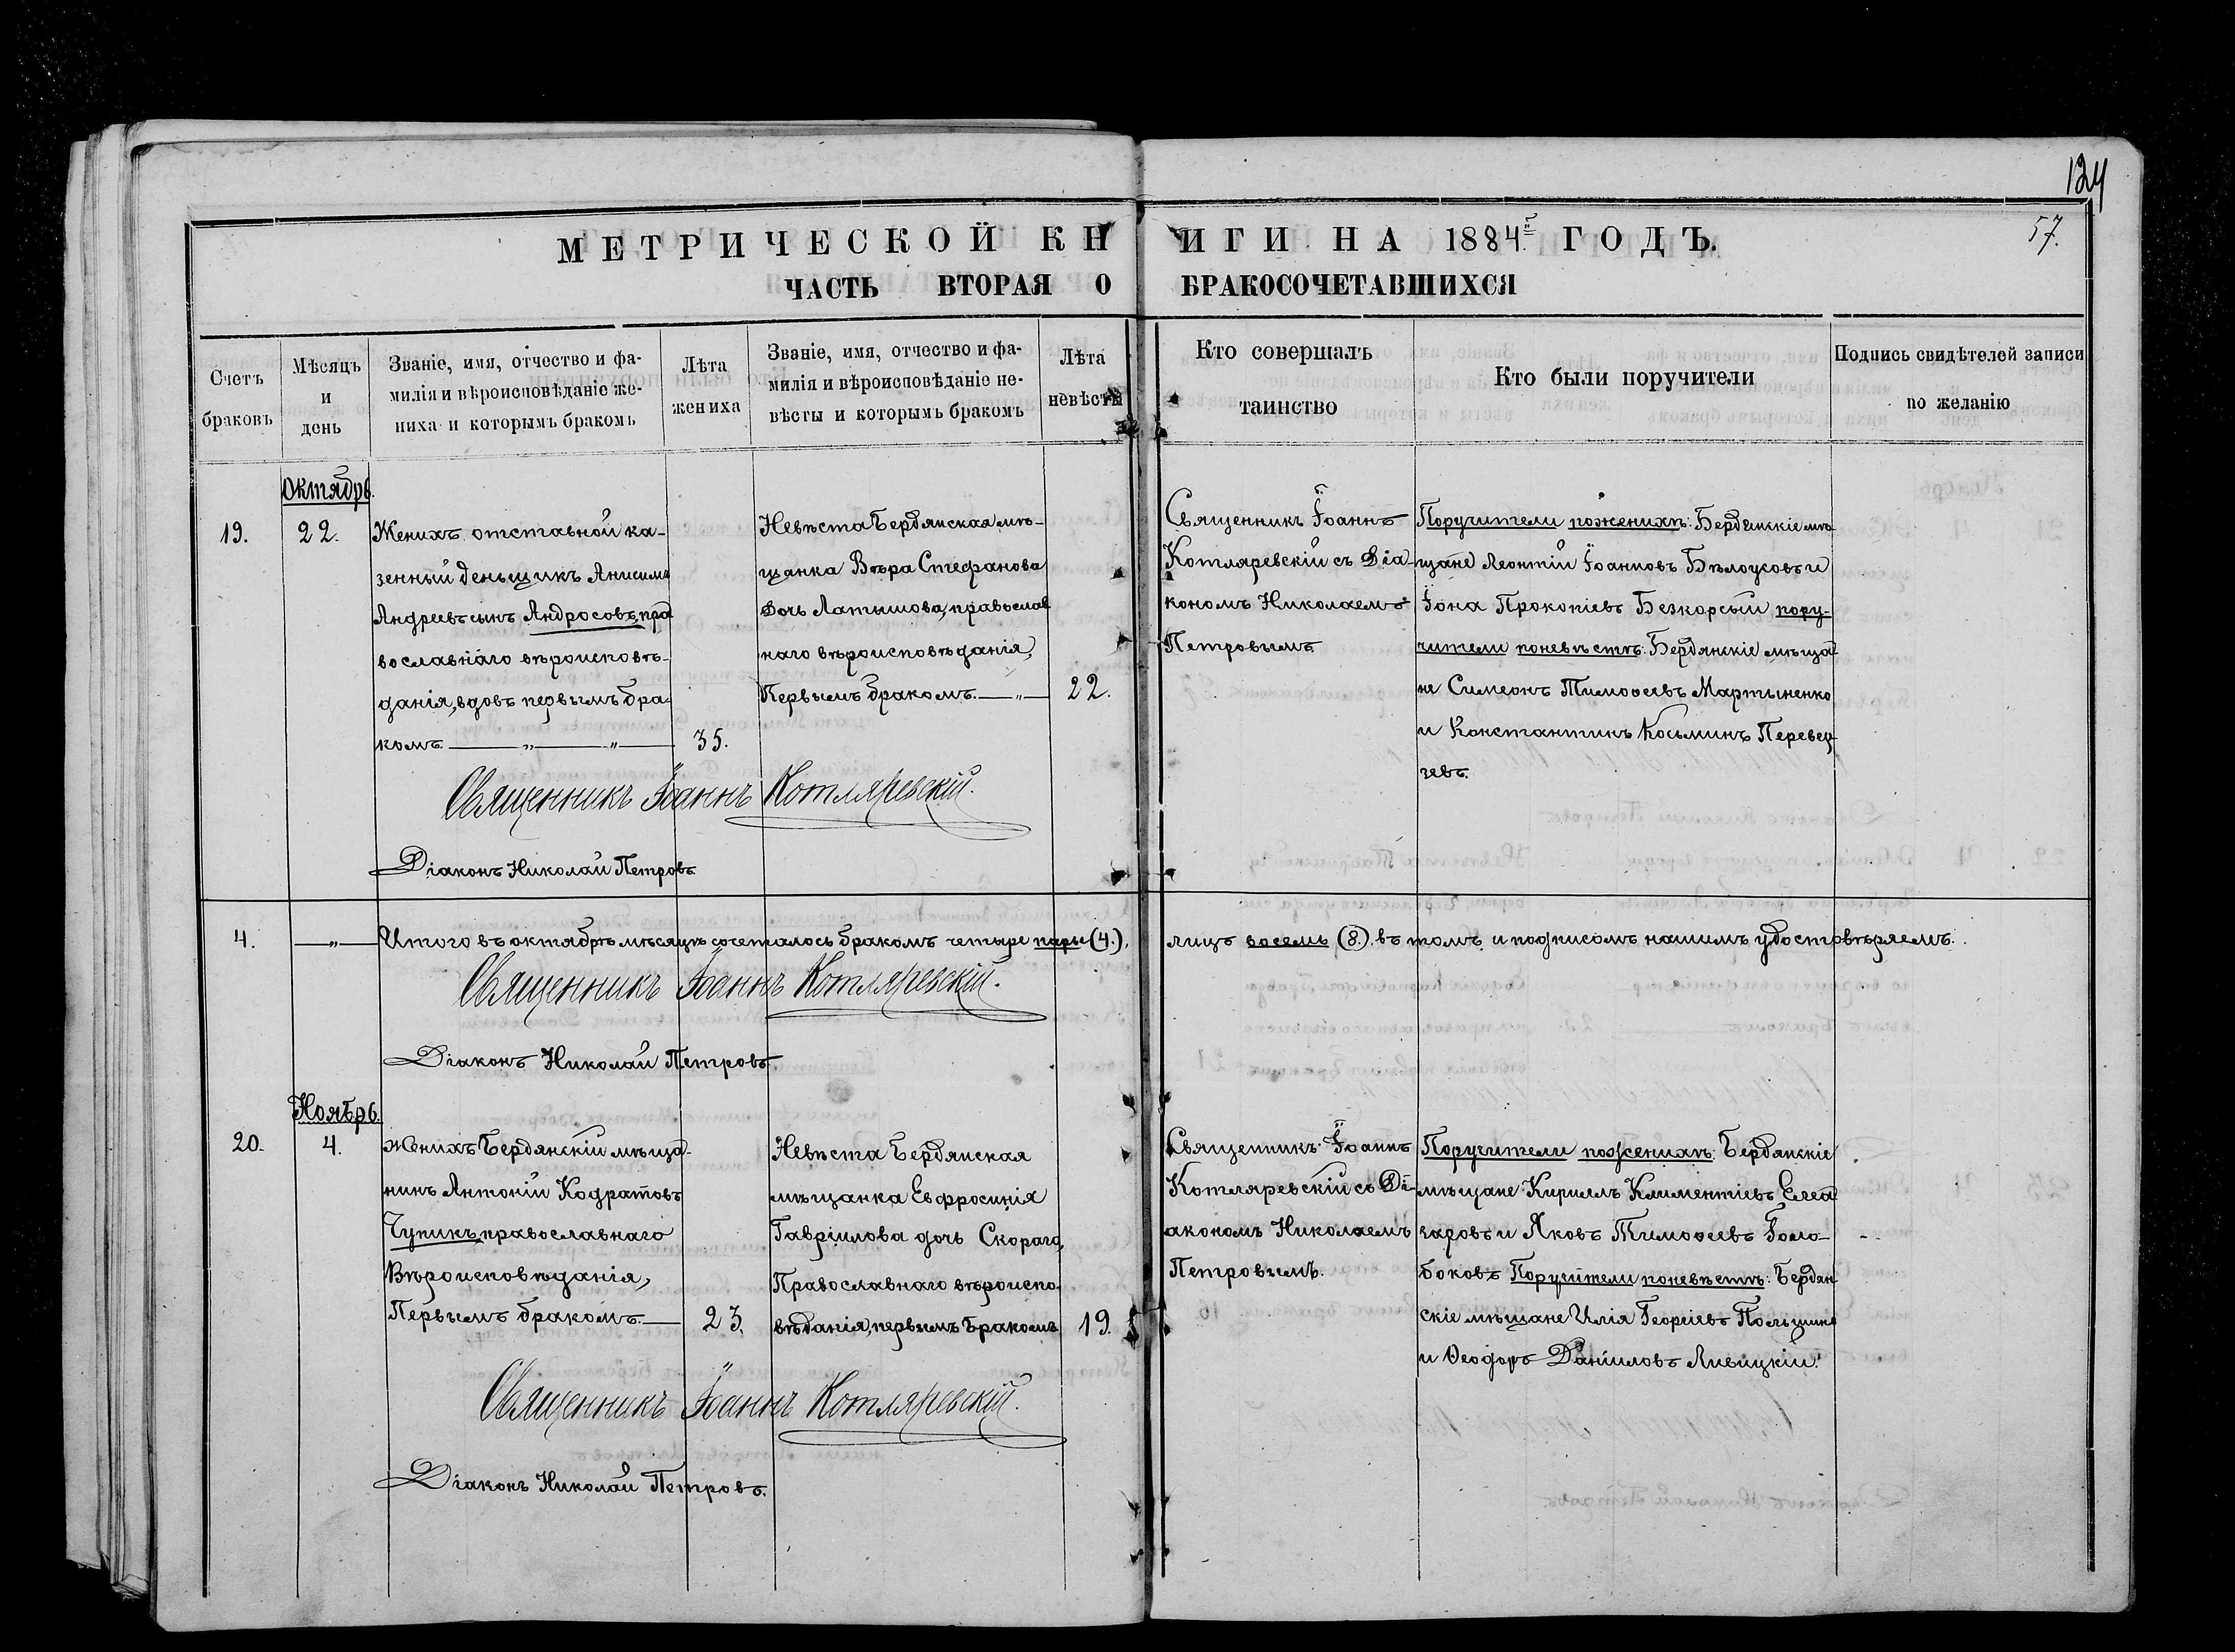 124
57.
МЕТРИЧЕСКОЙ КНИГИ НА 1884й ГОДЪ.
ЧАСТЬ ВТОРАЯ О БРАКОСОЧЕТАВШИХСЯ
Счетъ
браковъ
Мѣсяцъ
и
день
Званіе, имя, отчество и фа-
милія и вѣроисповѣданіе же-
ниха и которымъ бракомъ
Лѣта
жениха
Званіе, имя, отчество и фа-
милія и вѣроисповѣданіе не-
вѣсты и которымъ бракомъ
Лѣта
невѣсты
Кто совершалъ
таинство
Кто были поручители
Подпись свидѣтелей записи
по желанію
Октябрь.
19.
22.
Женихъ отставной ка-
зенный деньщикъ Анисимъ
Андреевъ сынъ Андросовъ, пра
вославнаго вѣроисповѣ-
данія, вдовъ первымъ бра-
комъ. — „ — „ —
35.
Невѣста Бердянская мѣ-
щанка Вѣра Стефанова
дочь Латышова, православ
наго вѣроисповѣданія,
Первымъ бракомъ. — „ —
22.
Священникъ Іоаннъ
Котляревскій съ Діа-
кономъ Николаемъ
Петровымъ
Поручители по женихѣ: Бердянскіе мѣ-
щане Леонтій Іоанновъ Бѣлоусовъ и
Іона Прокопіевъ Безкорсый пору-
чители по невѣстѣ: Бердянскіе мѣща
не Симеонъ Тимоѳеевъ Мартыненко
и Константинъ Косьминъ Перевер-
зевъ.
Священникъ Іоаннъ Котляревскій.
Діаконъ Николай Петровъ
4.
— „ — Итого въ октябрѣ мѣсяцѣ сочеталось бракомъ четыре пары (4.), лицъ восемь (8.), въ томъ и подписомъ нашимъ удостовѣряемъ.
Священникъ Іоаннъ Котляревскій.
Діаконъ Николай Петровъ
Ноябрь.
20.
4.
Женихъ Бердянскій мѣща-
нинъ Антоній Кодратовъ
Чупикъ, православнаго
Вѣроисповѣданія,
Первымъ бракомъ. —
23.
Невѣста Бердянская
мѣщанка Евфросинія
Гавріилова дочь Скораго,
Православнаго вѣроиспо-
вѣданія, первымъ бракомъ
19.
Священникъ Іоаннъ
Котляревскій съ Ді-
акономъ Николаемъ
Петровымъ.
Поручители по женихѣ: Бердянскіе
мѣщане Кириллъ Климентіевъ Елеа
заровъ и Яковъ Тимоѳеевъ Голо-
боковъ Поручители по невѣстѣ: Бердян
скіе мѣщане Илія Георгіевъ
и Ѳеодоръ Даніиловъ Ливицкій.
Священникъ Іоаннъ Котляревскій.
Діаконъ Николай Петровъ.